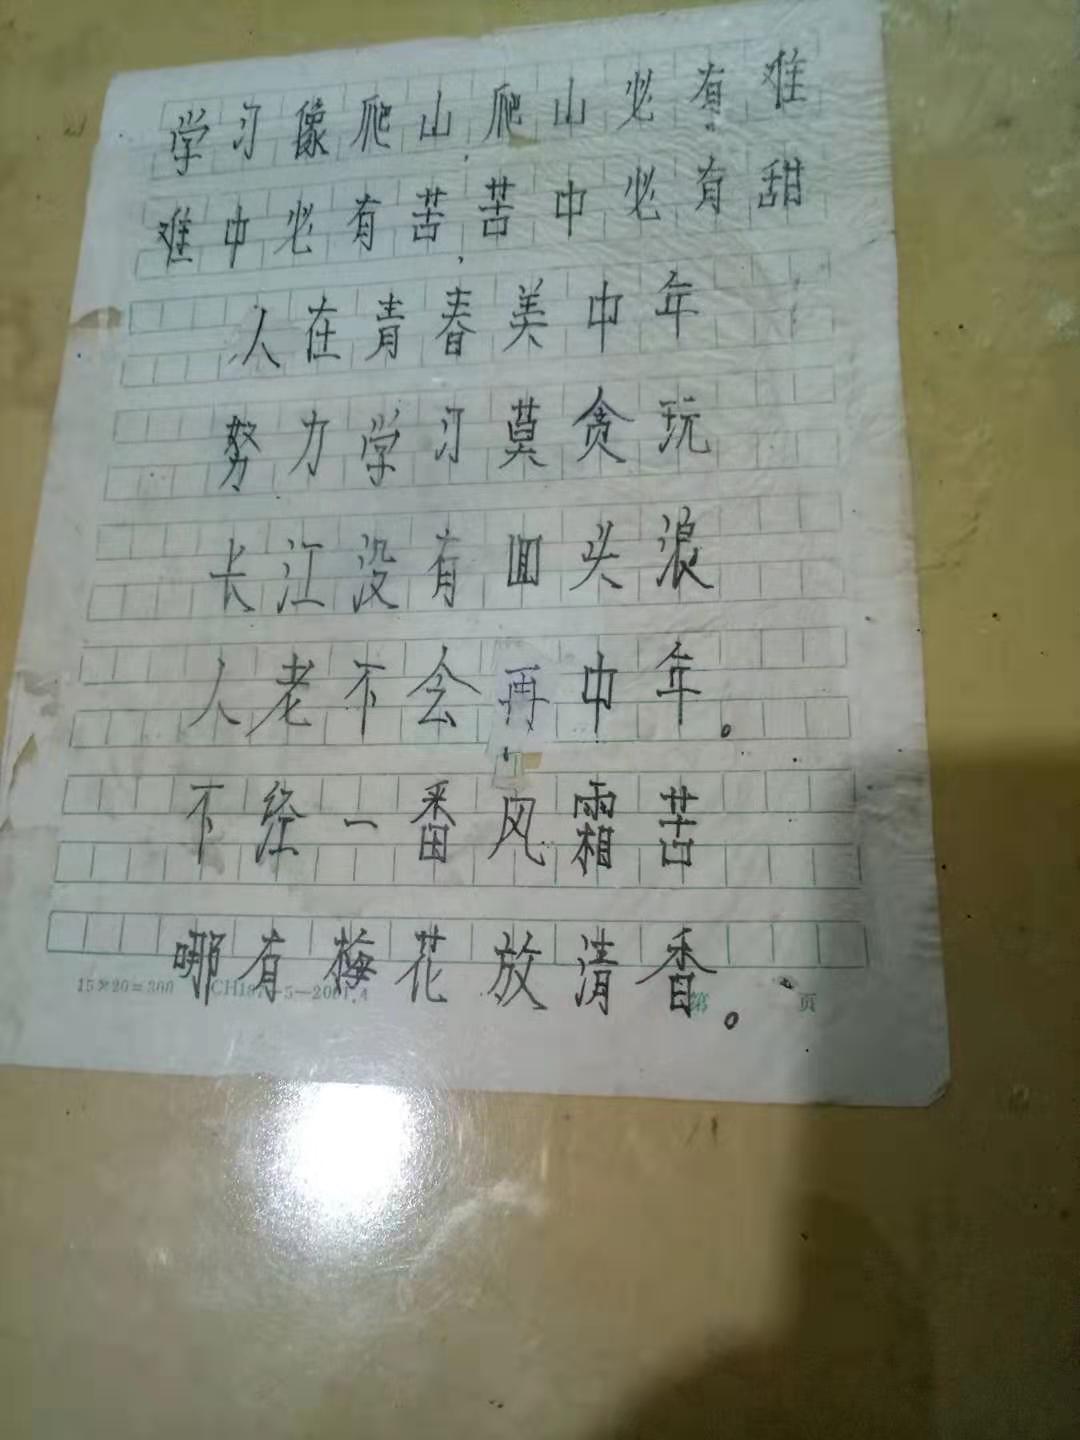 学习像爬山,爬山必有难
难中必有苦,苦中必有甜
人在青春美中年
努力学习莫贪玩
长江没有回头浪
人老不会再中年。
不经一番风霜苦
哪有梅花放清香。
15×20=300 第 页